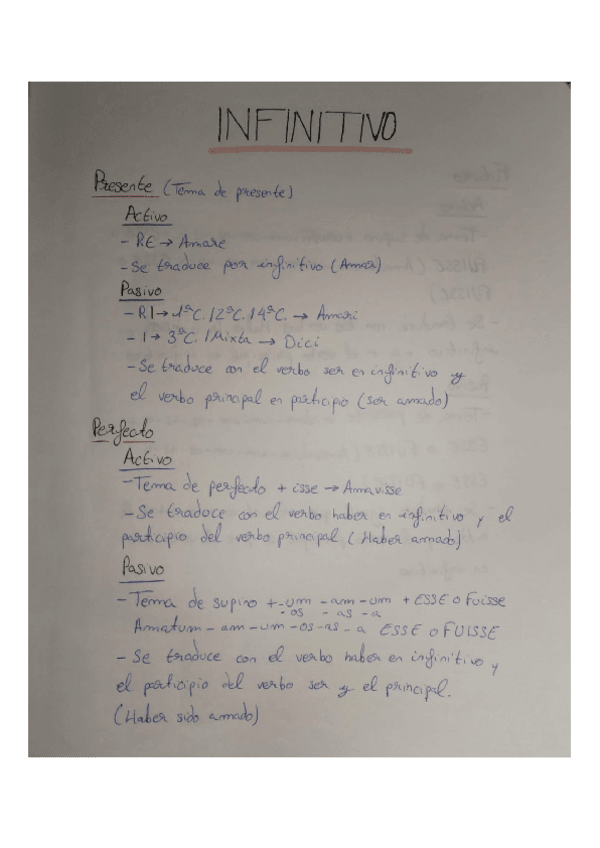 INFINITIVO
Presente (Tema de presente)
Activo
- RE → Amare
- Se traduce por infinitivo (Amar)
Pasivo
- RI → 1ªC. / 2ªC. / 4ªC. → Amari
- I → 3ªC. / Mixta → Dici
- Se traduce con el verbo ser en infinitivo y
el verbo principal en participio (ser amado)
Perfecto
Activo
- Tema de perfecto + isse → Amavisse
- Se traduce con el verbo haber en infinitivo y el
participio del verbo principal (Haber amado)
Pasivo
- Tema de supino + -um -am -um + ESSE o Fuisse
-os -as -a
Amatum - am - um - os - as - a ESSE o FUISSE
- Se traduce con el verbo haber en infinitivo y
el participio del verbo ser y el principal.
(Haber sido amado)